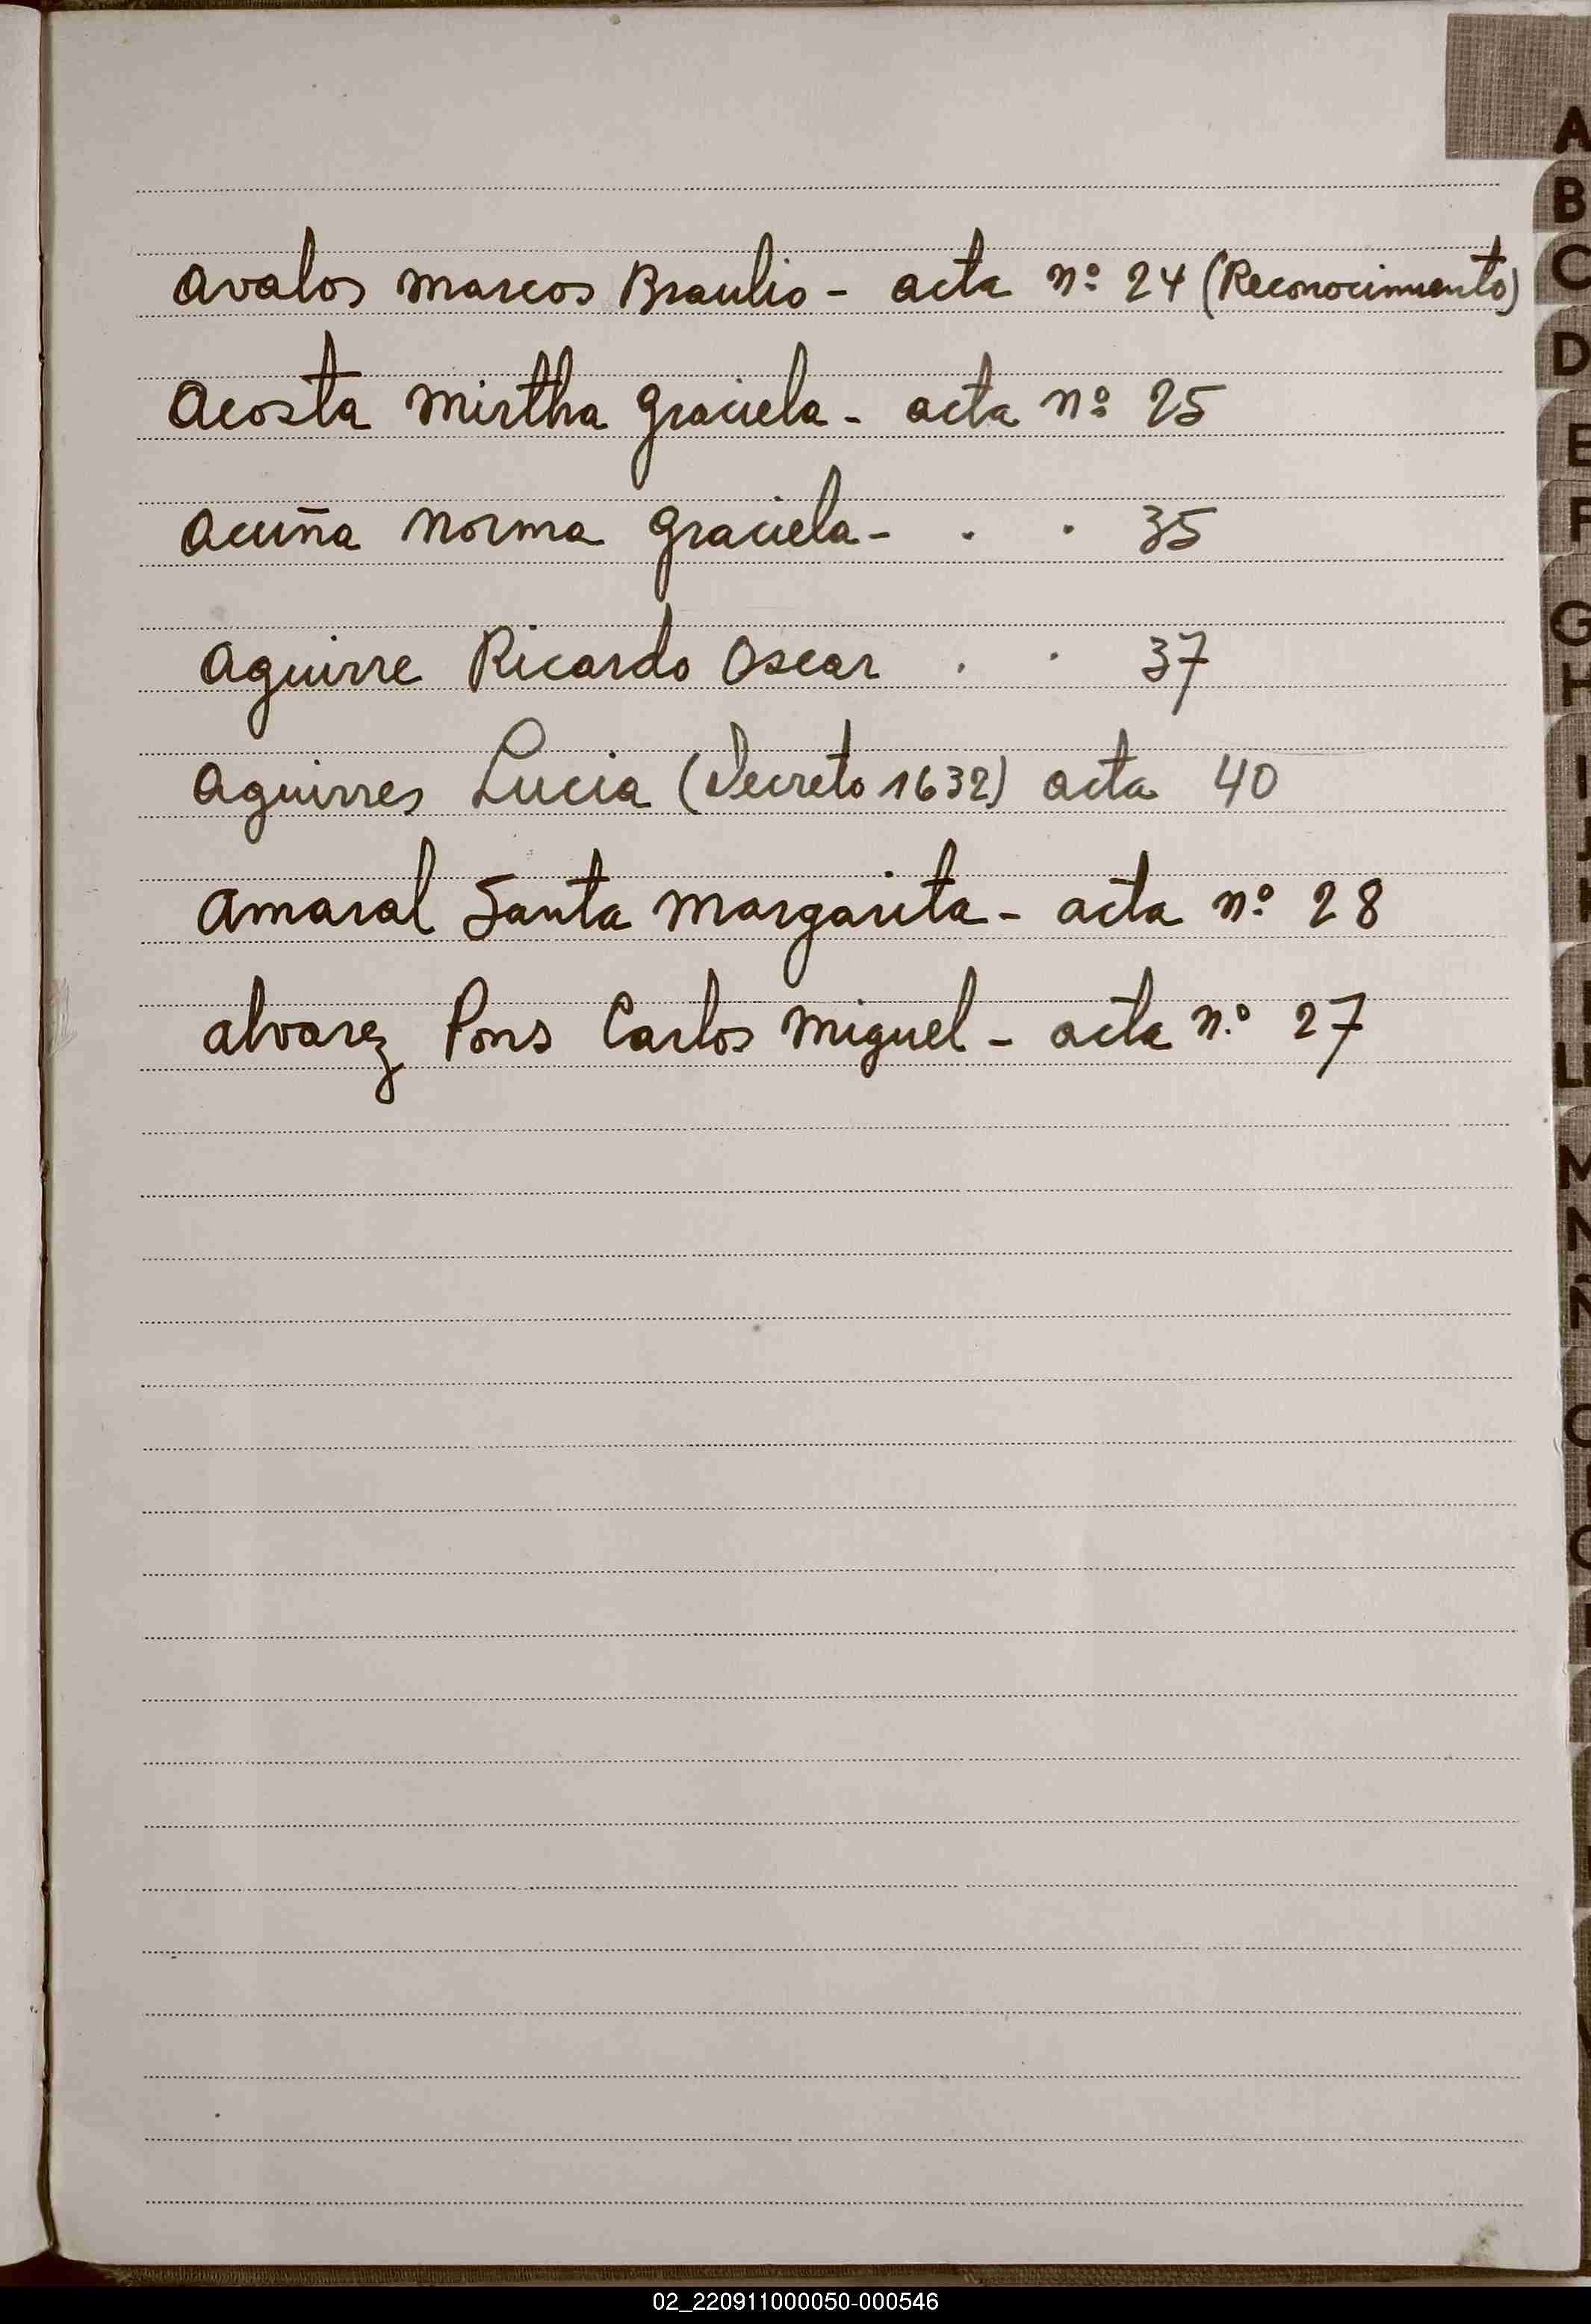 Avalos Marcos Braulio - acta nº 24 (Reconocimiento)
Acosta Mirtha Graciela - acta nº 25
Acuña Norma Graciela - . . 35
Aguirre Ricardo Oscar . . 37
Aguirres Lucia (Decreto 1632) acta 40
Amaral Santa Margarita - acta nº 28
Alvarez Pons Carlos Miguel - acta n.º 27
A
B
C
D
E
F
G
H
I
M
N
Ñ
02_220911000050-000546